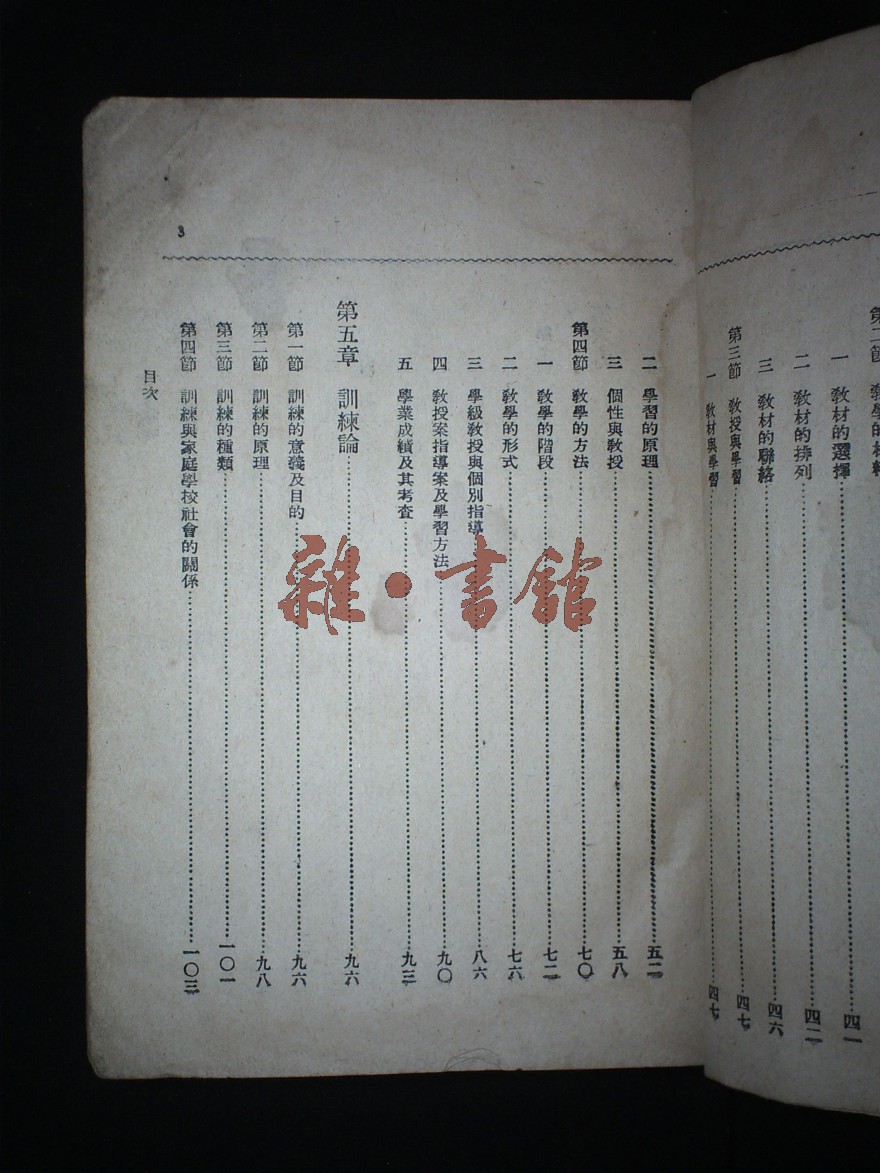 一 教材的選擇……四一
二 教材的排列……四二
三 教材的聯絡……四六
第三節 教授與學習……四七
一 教材與學習……四七
二 學習的原理……五二
三 個性與教授……五八
第四節 教學的方法……七〇
一 教學的階段……七二
二 教學的形式……七六
三 學級教授與個別指導……八六
四 教授案指導案及學習方法……九〇
五 學業成績及其考查……九三
第五章 訓練論……九六
第一節 訓練的意義及目的……九六
第二節 訓練的原理……九八
第三節 訓練的種類……一〇一
第四節 訓練與家庭學校社會的關係……一〇三
目次
3
雜·書館